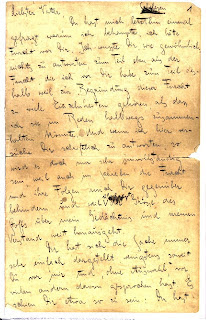 Liebster Vater,
Du hast mich letzthin einmal
gefragt, warum ich behaupte, ich hätte
Furcht vor Dir. Ich wusste Dir, wie gewöhnlich,
nichts zu antworten, zum Teil eben aus der
Furcht, die ich vor Dir habe, zum Teil des-
halb, weil zur Begründung dieser Furcht
zu viele Einzelnheiten gehören, als dass
ich sie im Reden halbwegs zusammen-
halten könnte. Und wenn ich hier ver-
suche Dir schriftlich zu antworten, so
wird es doch nur sehr unvollständig
sein, weil auch im Schreiben die Furcht
und ihre Folgen mich Dir gegenüber
behindern und weil die Grösse des
Stoffs über mein Gedächtnis und meinen
Verstand weit hinausgeht.
Dir hat sich die Sache immer
sehr einfach dargestellt, wenigstens soweit
Du vor mir und, ohne Auswahl, vor
vielen andern davon gesprochen hast. Es
schien Dir etwa so zu sein: Du hast